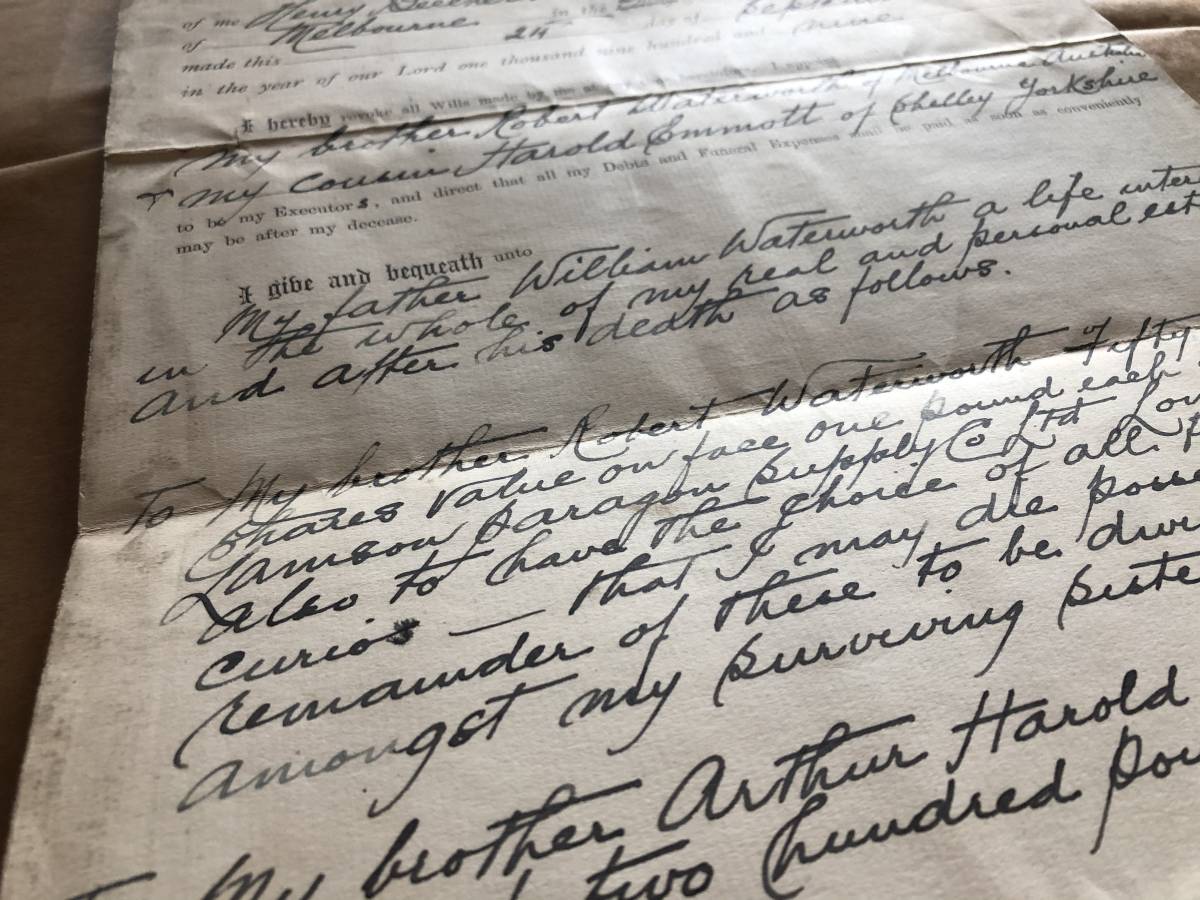 of me Henry
of Melbourne in the
made this 24 day of
in the year of our Lord one thousand nine hundred and nine
I hereby revoke all Wills made by me
My brother Robert Waterworth of Melbourne
& my cousin Harold Emmott of Shelley Yorkshire
to be my Executors, and direct that all my Debts and Funeral Expenses shall be paid as soon as conveniently
may be after my decease.
I give and bequeath unto
My father William Waterworth a life
in the whole of my real and personal
and after his death as follows.
To My brother Robert Waterworth Fifty
shares value on face one pound each
Lamson Paragon Supply Co Ltd
also to have the choice of all
curios — that I may die
remainder of these to be
amongst my surviving
To My brother Arthur Harold
two hundred